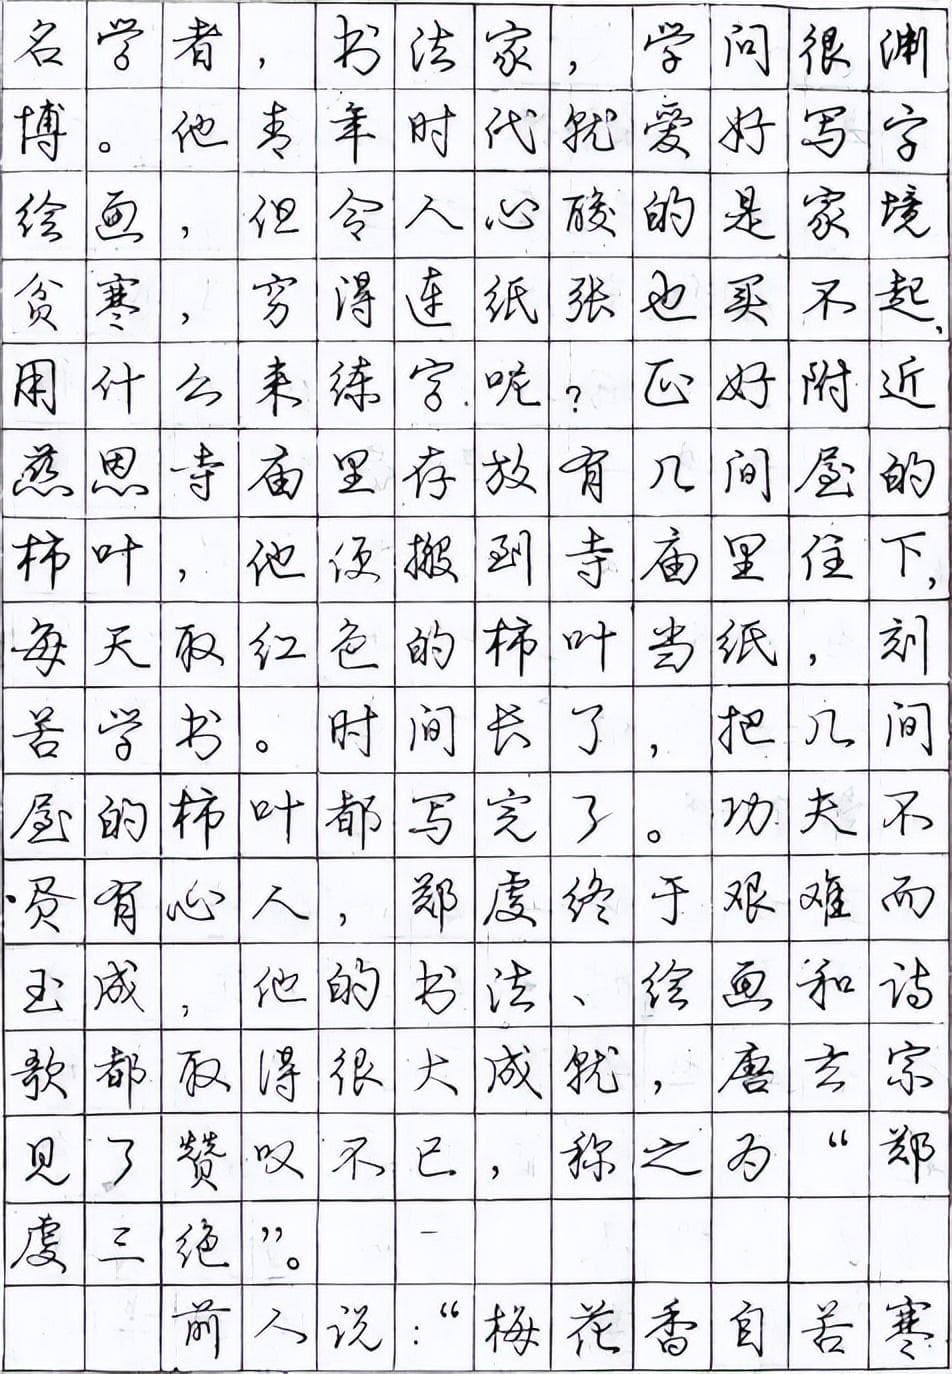 名学者，书法家，学问很渊
博。他青年时代就爱好写字
绘画，但令人心酸的是家境
贫寒，穷得连纸张也买不起，
用什么来练字呢？正好附近
慈恩寺庙里存放有几间屋的
柿叶，他便搬到寺庙里住下，
每天取红色的柿叶当纸，刻
苦学书。时间长了，把几间
屋的柿叶都写完了。功夫不
员有心人，郑虔终于艰难而
玉成，他的书法、绘画和诗
歌都取得很大成就，唐玄宗
见了赞叹不已，称之为“郑
虔三绝”。
前人说：“梅花香自苦寒